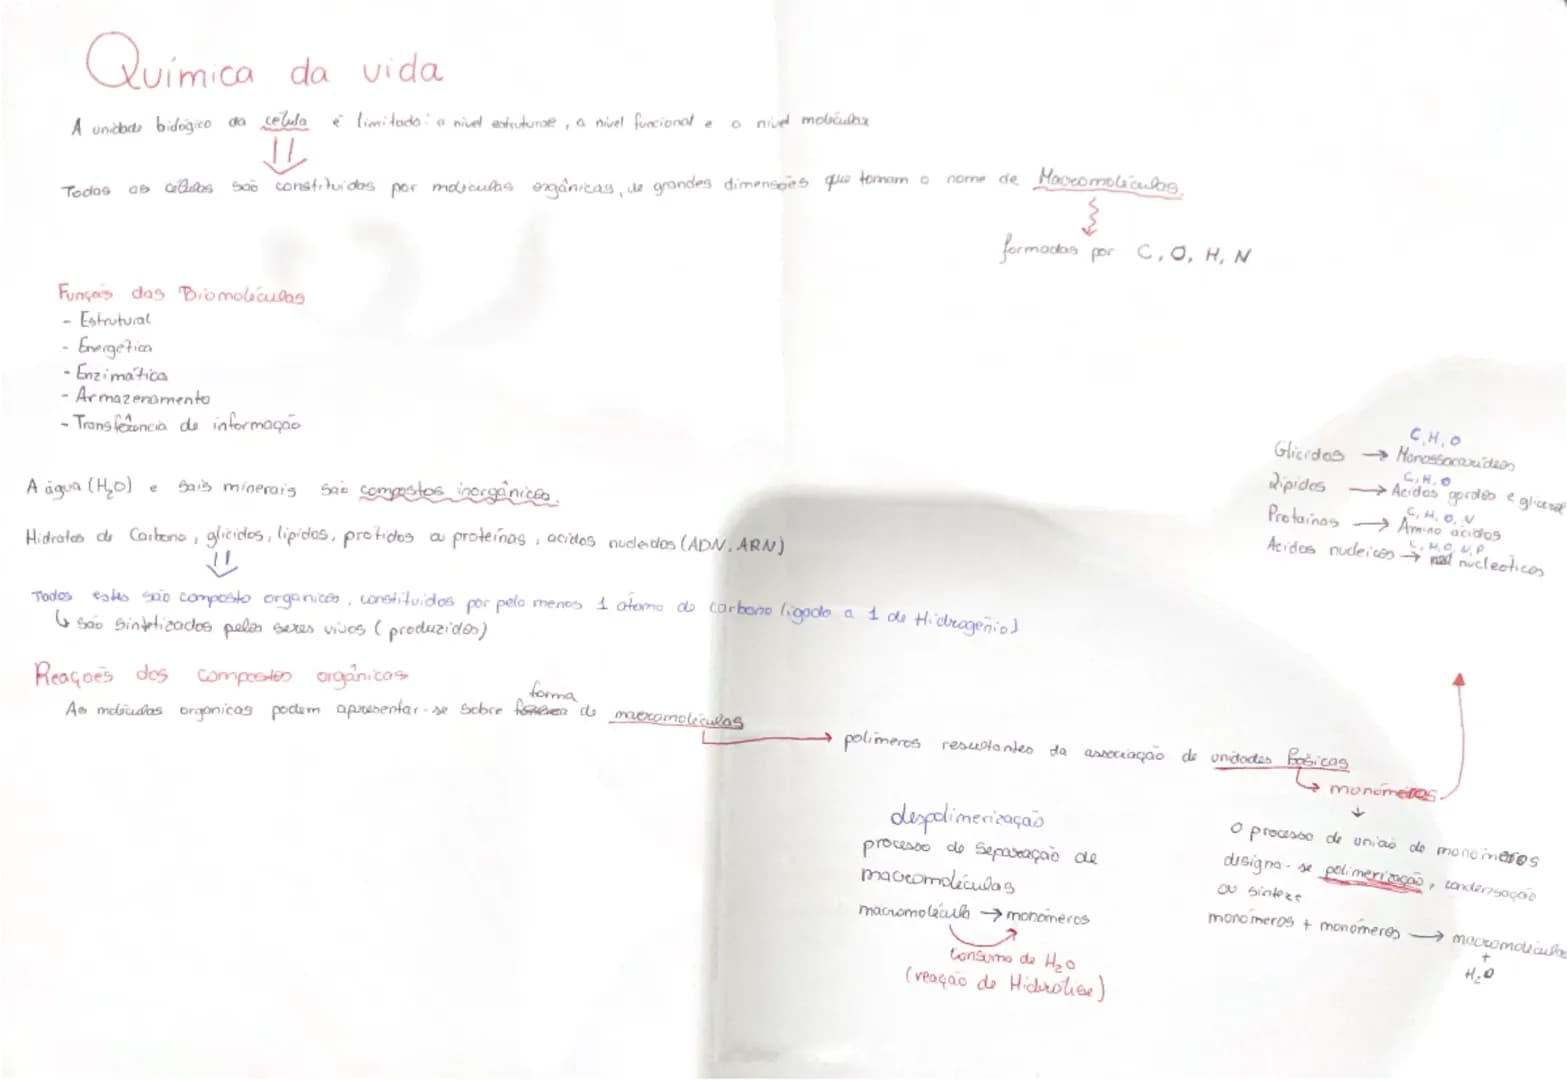 Química da vida
A unidade biológico da célula é limitado: a nível estruturae, a nível funcional e a nível molécular
Todas as células são constituidas por moléculas orgânicas, de grandes dimensões que tomam o nome de Macromoléculas.
formadas por C, O, H, N
Funções das Biomoléculas
- Estrutural
- Energética
- Enzimática
- Armazenamento
- Transferência de informação
A água (H₂O) e sais minerais são compostos inorgânicos.
Hidratos de Carbono, glicidos, lipidos, protidos ou proteínas, acidos nucleidos (ADN, ARN)
Todos estes são composto organicos, constituidos por pelo menos 1 atomo de carbono ligado a 1 de Hidrogénio)
↳ são sintetizados pelos seres vivos (produzidos)
C, H, O
Glicidos → Monossacarideos
C, H, O
Lipidos → Acidos gordos e glicerol
C, H, O, N
Proteinas → Amino acidos
C, H, O, N, P
Acidos nucleicos → nucleoticos
Reações dos compostos orgânicos
forma
As moléculas organicas podem apresentar-se sobre de macromoléculas
→ polímeros resultantes da associação de unidades básicas
↳ monómeros
↓
O processo de união de monómeros
designa-se polimerização, condensação
ou sintese
monómeros + monómeros → macromoléculas
+
H₂O
despolimerização
processo de separação de
macromoléculas
macromolécula → monómeros
Consumo de H₂O
(reação de Hidrolise)